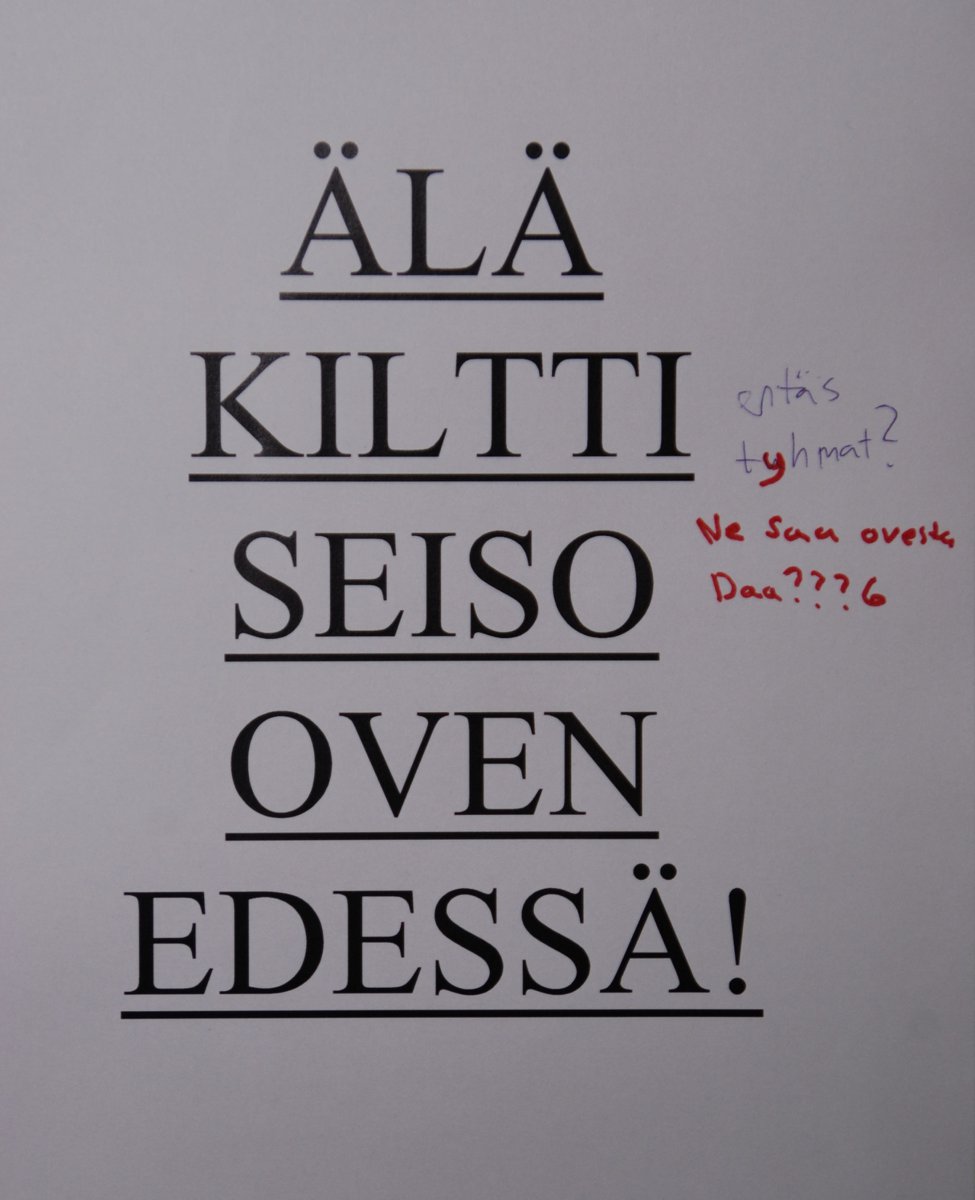 ÄLÄ
KILTTI
entäs
tyhmat?
SEISO
Ne saa ovesta
Daa???6
OVEN
EDESSÄ!